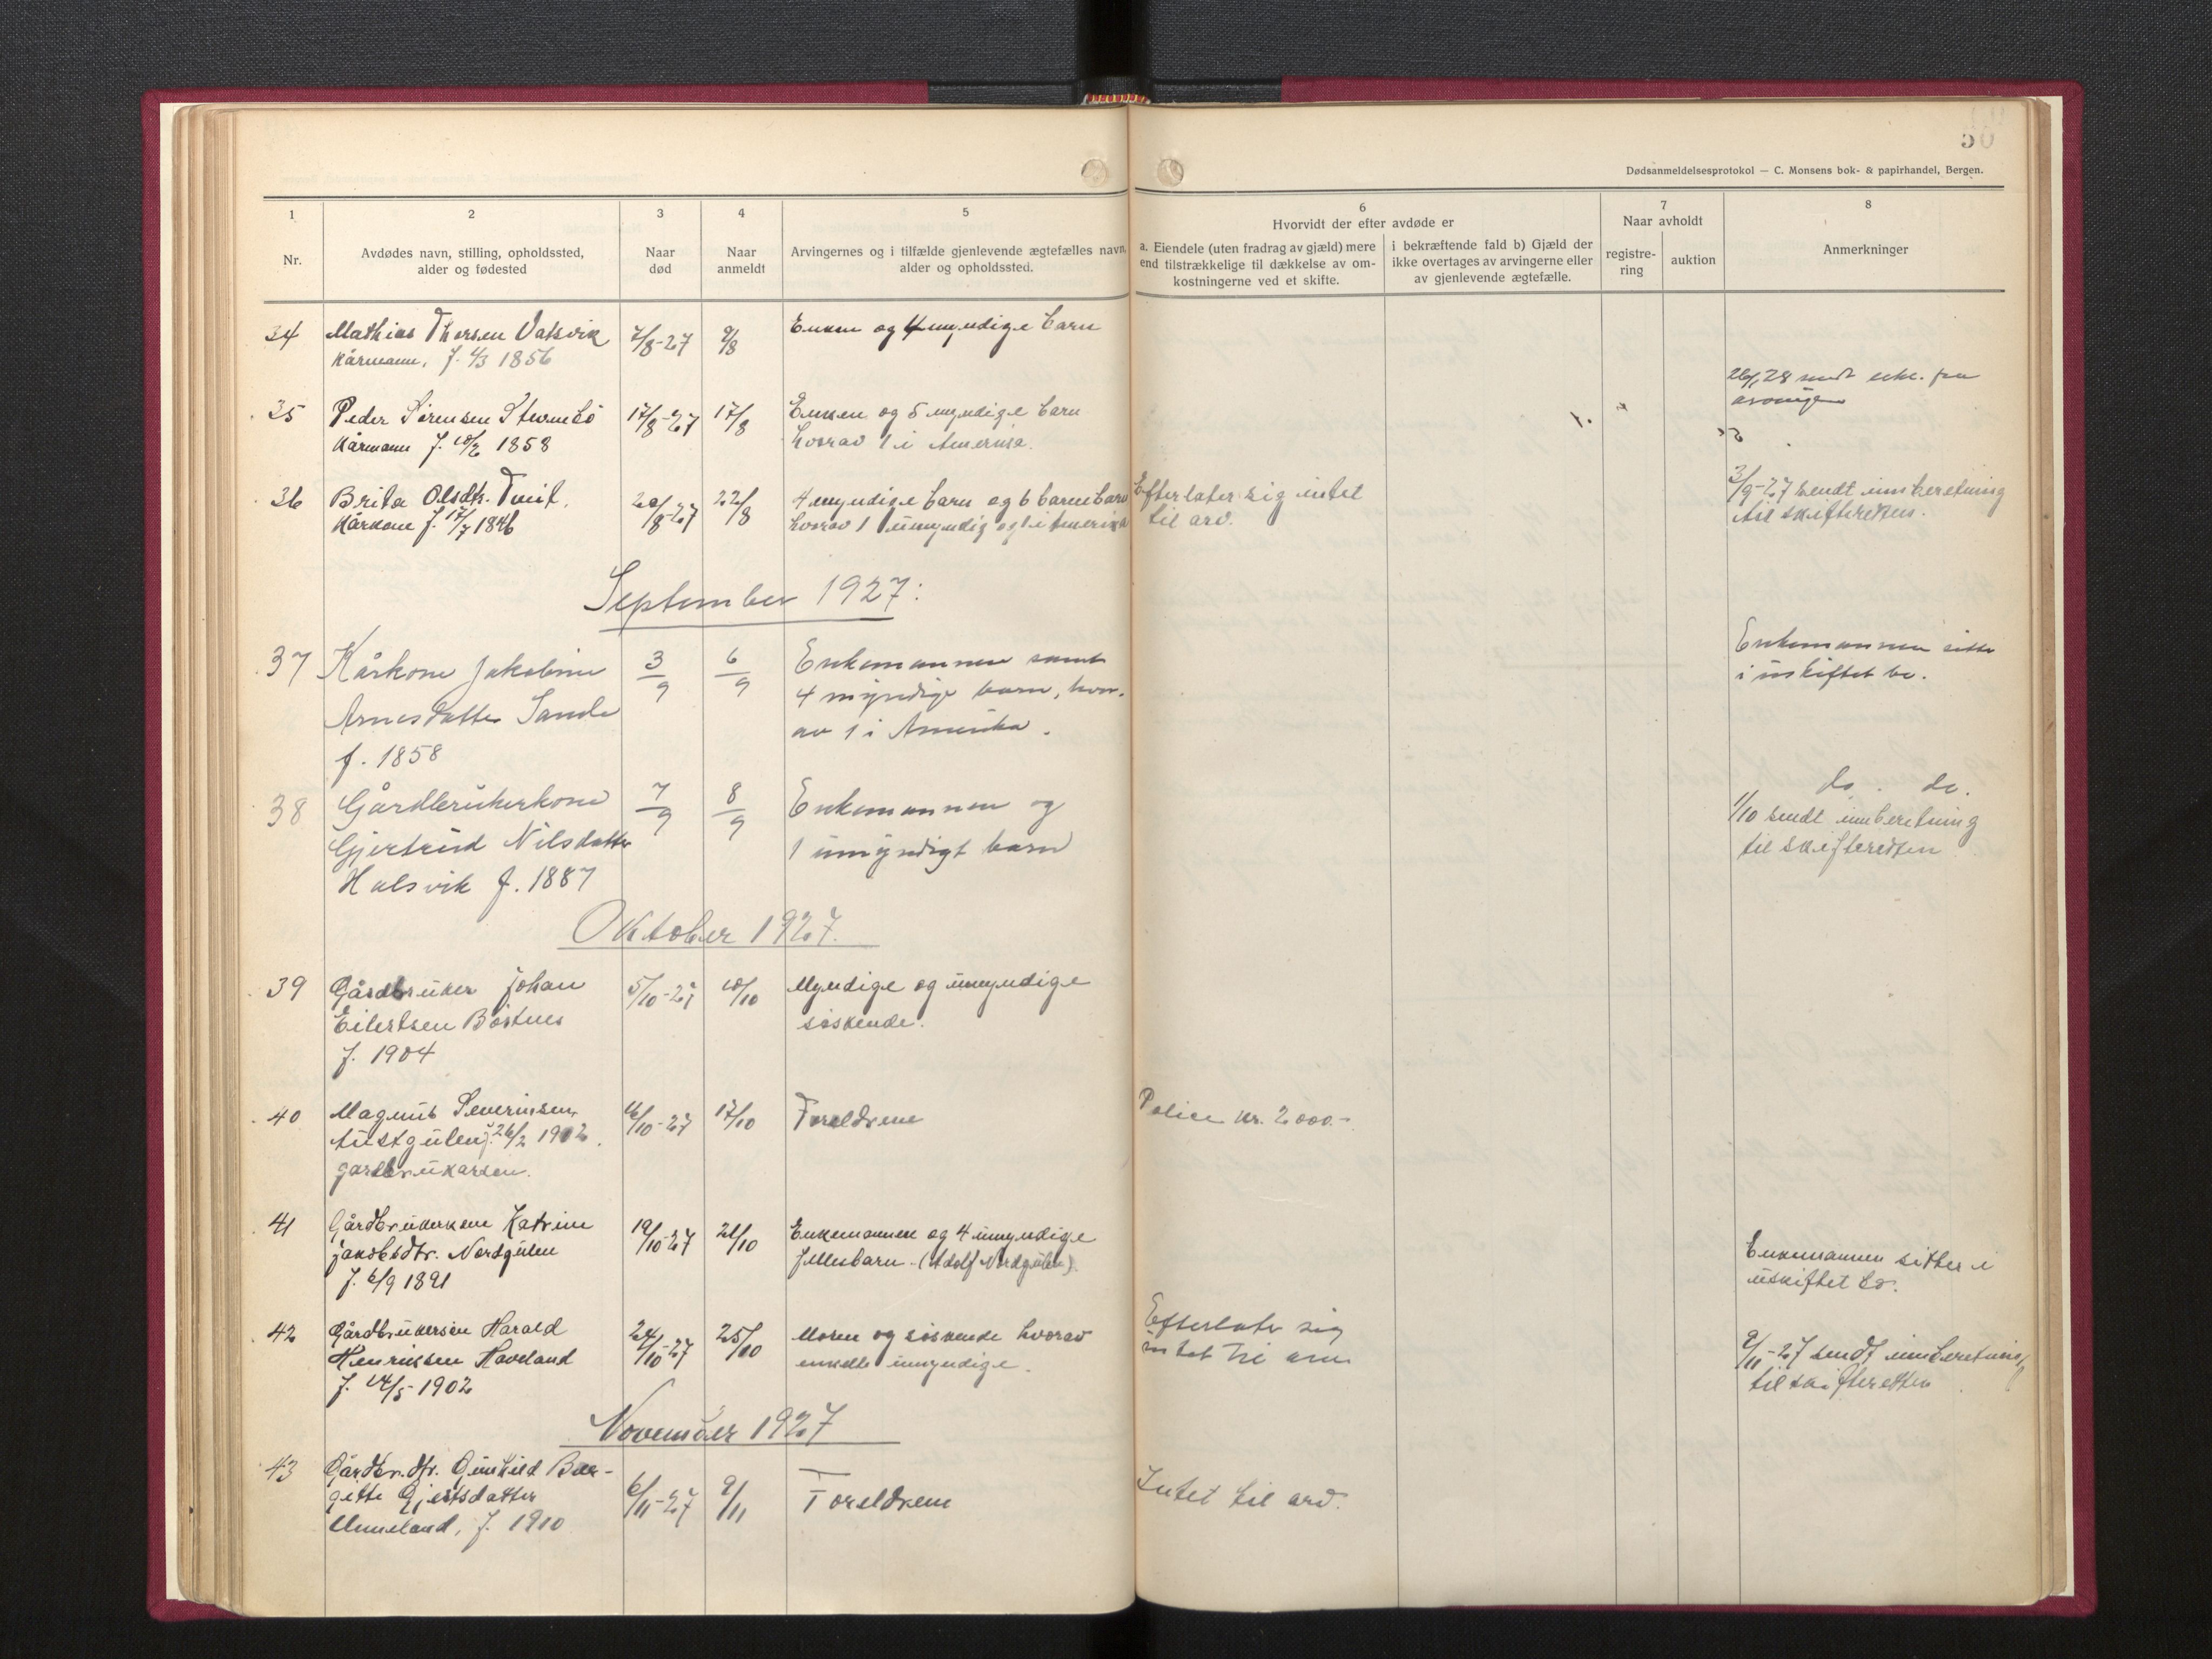 50
Dødsanmeldelsesprotokol — C. Monsens bok- & papirhandel, Bergen.
1
2
3
4
5
6
7
8
Nr.
Avdødes navn, stilling, opholdssted,
alder og fødested
Naar
død
Naar
anmeldt
Arvingernes og i tilfælde gjenlevende ægtefælles navn,
alder og opholdssted.
Hvorvidt der efter avdøde er
a. Eiendele (uten fradrag av gjæld) mere
end tilstrækkelige til dækkelse av om-
kostningerne ved et skifte.
i bekræftende fald b) Gjæld der
ikke overtages av arvingerne eller
av gjenlevende ægtefælle.
Naar avholdt
registre-
ring
auktion
Anmerkninger
34 Mathias Thorsen Vatsvik 7/8-27 9/8 Enken og 4 myndige barn
Kårmann, f. 4/3 1856
28 sendt
35 Peder Sørensen 17/8-27 17/8 Enken og 5 myndige barn
Kårmann f. 10/2 1858 hvorav 1 i Amerika.
36 Brita Olsdtr. Tveit. 20/8-27 22/8 4 myndige barn og 6 barnebarn Efterlater sig intet 3/9-27 sendt innberetning
Kårkone f. 17/7 1846 hvorav 1 umyndig og 1 i Amerika til arv. til skifteretten.
September 1927:
37 Kårkone Jakobine 3/9 6/9 Enkemannen samt Enkemannen sitter
Arnesdatter Sande 4 myndige barn, hvor- i uskiftet bo.
f. 1858 av 1 i Amerika.
38 Gårdbrukerkone 7/9 8/9 Enkemannen og do. do.
Gjertrud Nilsdatter 1 umyndigt barn 1/10 sendt innberetning
Halsvik f. 1887 til skifteretten
Oktober 1927.
39 Gårdbruker Johan 5/10-27 10/10 Myndige og umyndige
Eilertsen Børtnes søskende.
f. 1904
40 Magnus Severinsen 16/10-27 17/10 Foreldrene Police kr. 2000.-
Austgulen f. 26/2 1902.
gardbrukarsøn.
41 Gårdbrukerkone Katrine 19/10-27 21/10 Enkemannen og 4 umyndige Enkemannen sitter i
Jakobsdtr. Nordgulen fellesbarn. (Adolf Nordgulen). uskiftet bo.
f. 6/9 1891
42 Gårdbrukersøn Harald 24/10-27 25/10 Moren og søskende hvorav Efterlater sig 9/11-27 sendt innberetning
Henriksen Haveland enkelte umyndige. intet til arv. til skifteretten
f. 14/5-1902
November 1927
43 Gårdbr.dtr. Gunhild Bær- 6/11-27 9/11 Foreldrene Intet til arv.
gitte Gjertsdatter
Unneland, f. 1910